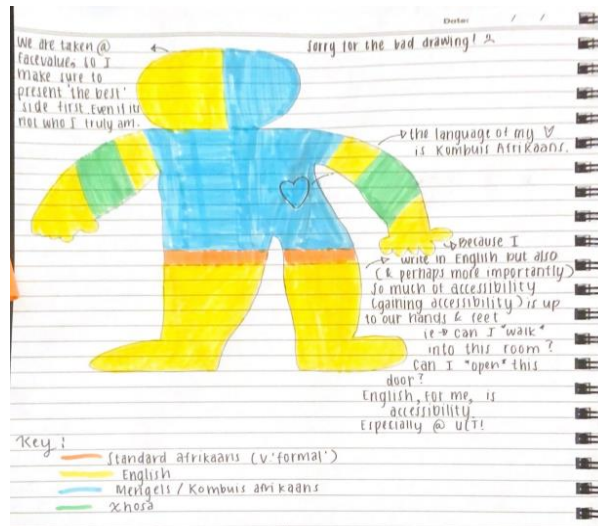 Date: / /
We are taken @
facevalue, so I
make sure to
present 'the best'
side first. Even if its
not who I truly am.
Sorry for the bad drawing!
the language of my ♡
is Kombuis Afrikaans.
Because I
write in English but also
(& perhaps more importantly)
so much of accessibility
(gaining accessibility) is up
to our hands & feet
ie → can I "walk"
into this room?
Can I "open" this
door?
English, for me, is
accessibility.
Especially @ UCT!
Key:
Standard afrikaans (v 'formal')
English
Mengels / Kombuis afrikaans
Xhosa